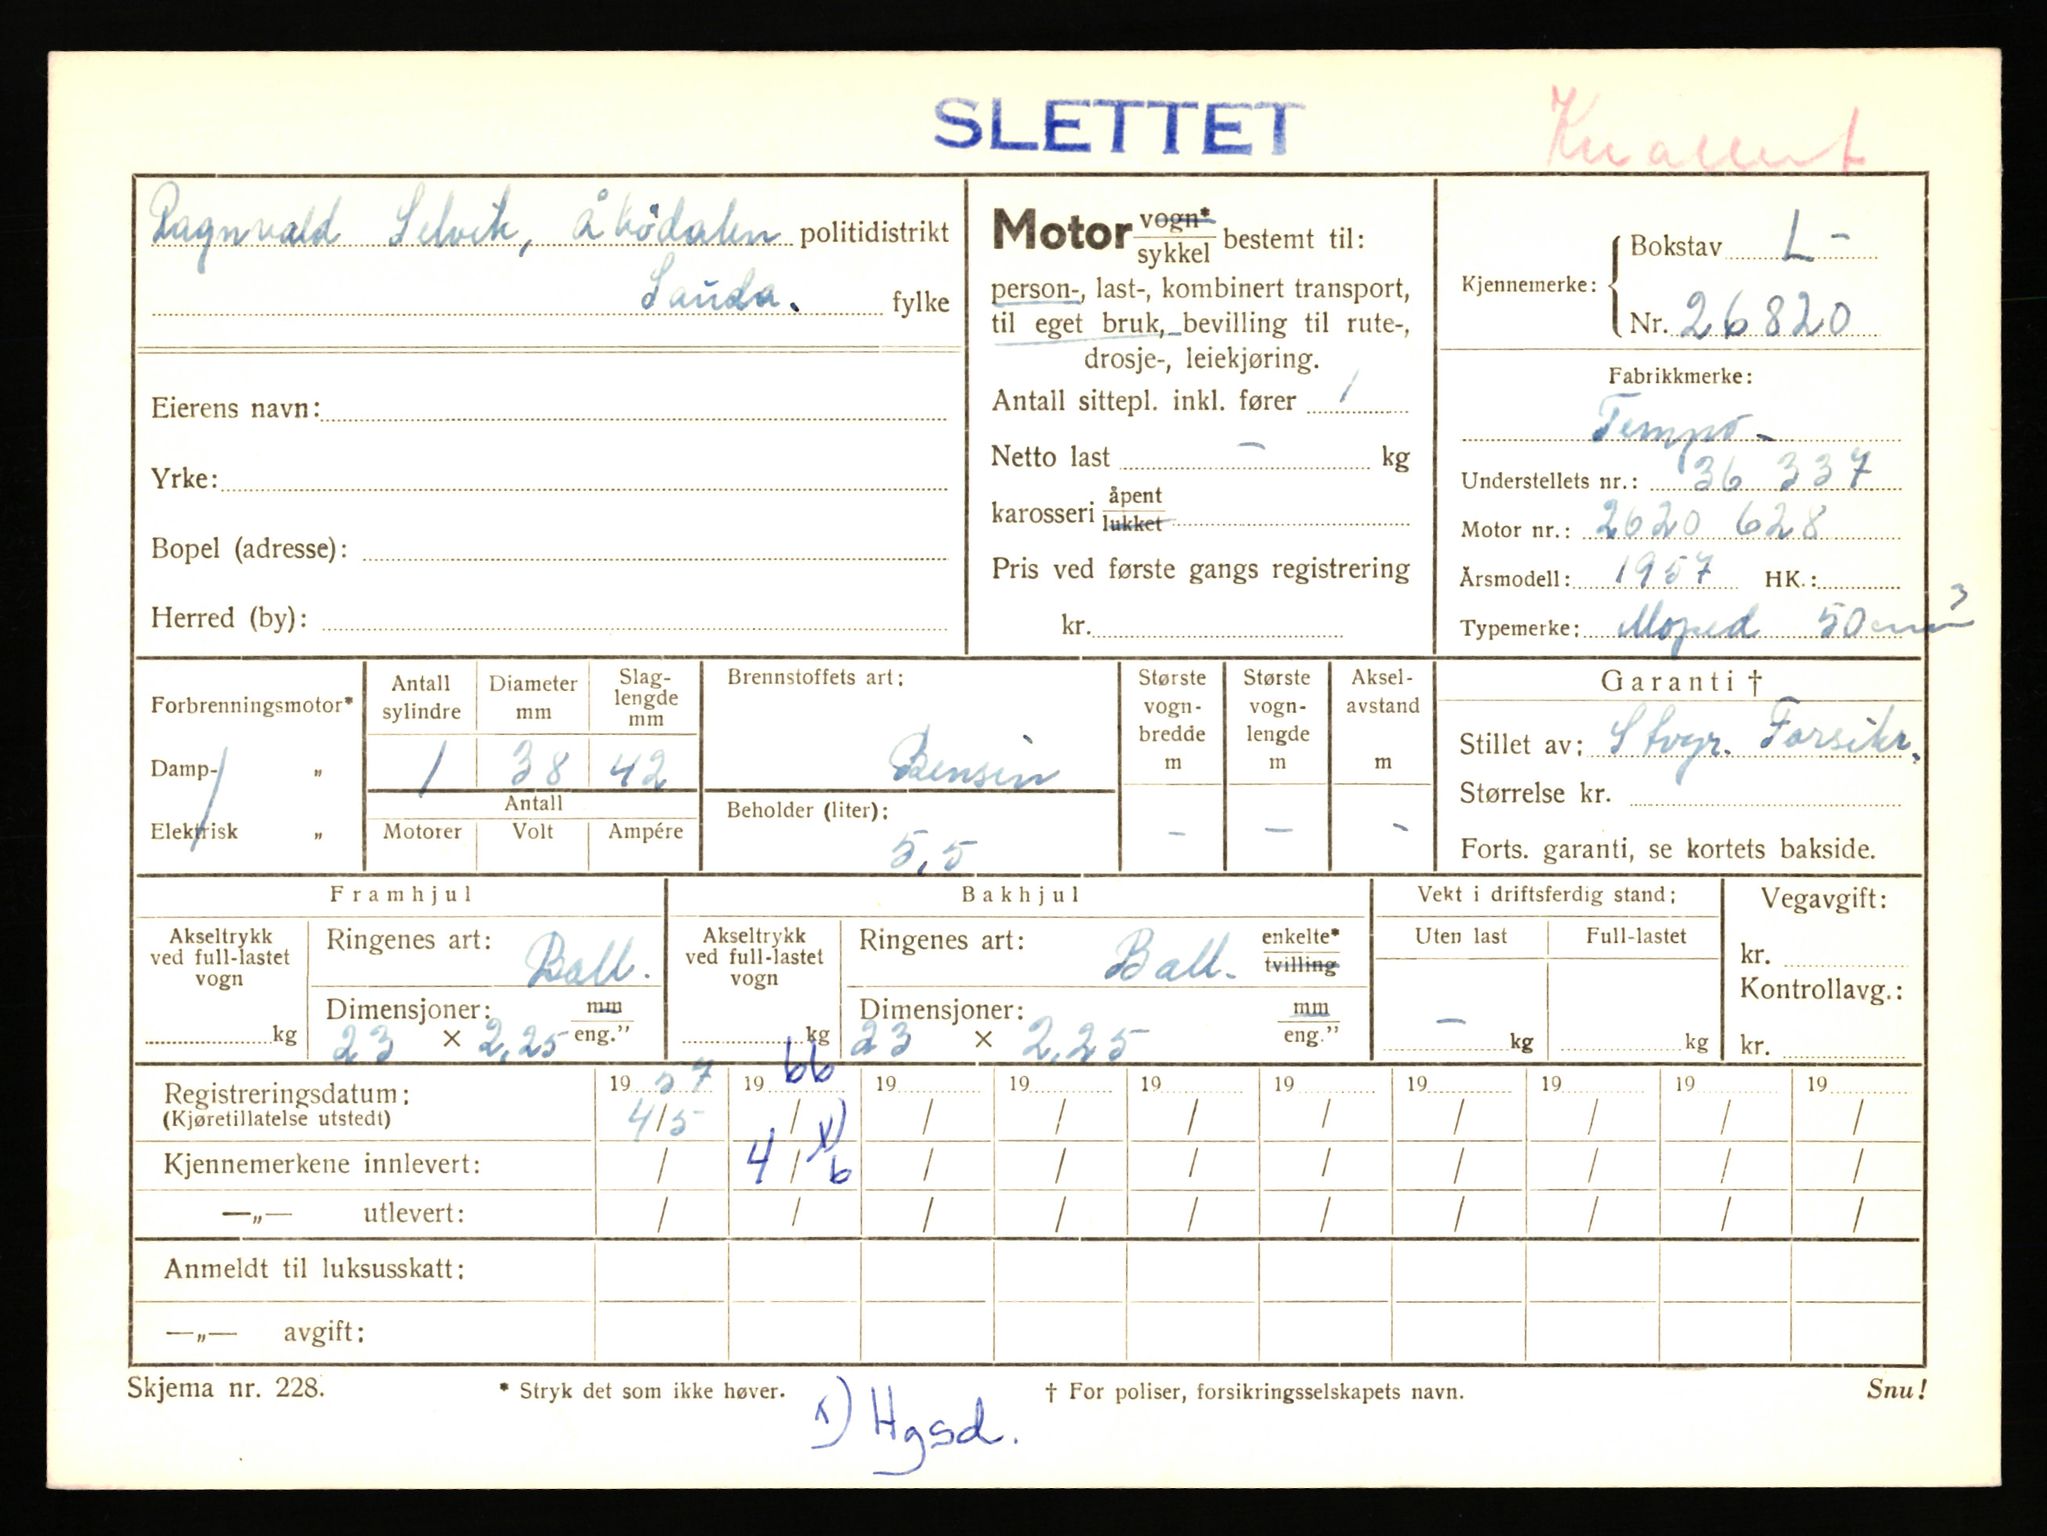 SLETTET
Knallert
Ragnvald Selvik, Åbödalen politidistrikt
Sauda. fylke
Eierens navn:
Yrke:
Bopel (adresse):
Herred (by):
Motor vogn* / sykkel bestemt til:
person-, last-, kombinert transport,
til eget bruk, bevilling til rute-,
drosje-, leiekjøring.
Antall sittepl. inkl. fører 1
Netto last – kg
karosseri åpent / lukket
Pris ved første gangs registrering
kr.
Kjennemerke: Bokstav L-
Nr. 26820
Fabrikkmerke:
Tempo-
Understellets nr.: 36 337
Motor nr.: 2620 628
Årsmodell: 1957 HK.:
Typemerke: Moped 50 cm3
Forbrenningsmotor*
Damp- „
Elektrisk „
Antall sylindre
Diameter mm
Slag-lengde mm
1 38 42
Antall
Motorer Volt Ampére
Brennstoffets art:
Bensin
Beholder (liter):
5,5
Største vogn-bredde m
Største vogn-lengde m
Aksel-avstand m
– – -
Garanti †
Stillet av: Stvgr. Forsikr.
Størrelse kr.
Forts. garanti, se kortets bakside.
Framhjul
Akseltrykk ved full-lastet vogn
kg
Ringenes art: Ball.
Dimensjoner: mm / eng.”
23 × 2,25
Bakhjul
Akseltrykk ved full-lastet vogn
kg
Ringenes art: Ball. enkelte* / tvilling
Dimensjoner: mm / eng.”
23 × 2,25
Vekt i driftsferdig stand:
Uten last Full-lastet
– kg kg
Vegavgift:
kr.
Kontrollavg.:
kr.
Registreringsdatum: 19 57 19 66 19 19 19 19 19 19 19 19
(Kjøretillatelse utstedt) 4/5 / / / / / / / / /
Kjennemerkene innlevert: / 4/6 x) / / / / / / / /
—„— utlevert: / / / / / / / / / /
Anmeldt til luksusskatt:
—„— avgift:
Skjema nr. 228. * Stryk det som ikke høver. † For poliser, forsikringsselskapets navn. Snu!
x) Hgsd.